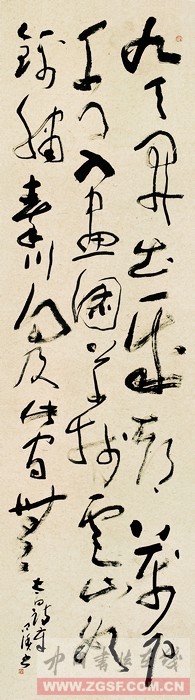 九天開出一成都萬户
千门入畫圖草树雲山如
錦繡秦川得及此间無
中国书法在线
WWW.ZGSF.COM.CN